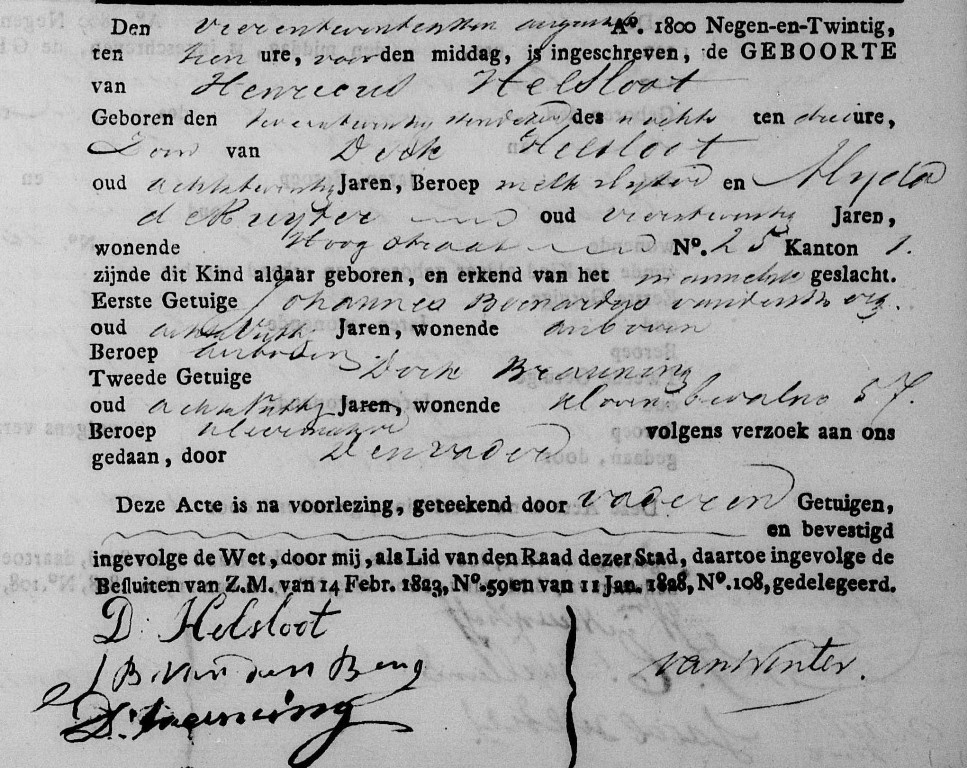 Den vierentwintigsten augustus Aº. 1800 Negen-en-Twintig,
ten tien ure, voorden middag, is ingeschreven, de GEBOORTE
van Henricus Helsloot
Geboren den dezer des nachts ten drieure,
Zoon van Dirk Helsloot
oud achtentwintig Jaren, Beroep melkslyter en Alyda
de Ruyter oud vierentwintig Jaren,
wonende Hoogstraat Nº. 25 Kanton 1.
zijnde dit Kind aldaar geboren, en erkend van het mannelyke geslacht.
Eerste Getuige Johannes Bernardus vanden Berg.
oud Jaren, wonende
Beroep
Tweede Getuige Dirk Breuning
oud Jaren, wonende 57.
Beroep volgens verzoek aan ons
gedaan, door Den vader
Deze Acte is na voorlezing, geteekend door vader en Getuigen,
en bevestigd
ingevolge de Wet, door mij, als Lid van den Raad dezer Stad, daartoe ingevolge de
Besluiten van Z.M. van 14 Febr. 1823, Nº. 59 en van 11 Jan. 1828, Nº. 108, gedelegeerd.
D. Helsloot
J B van den Berg
D. Breuning
van Winter.